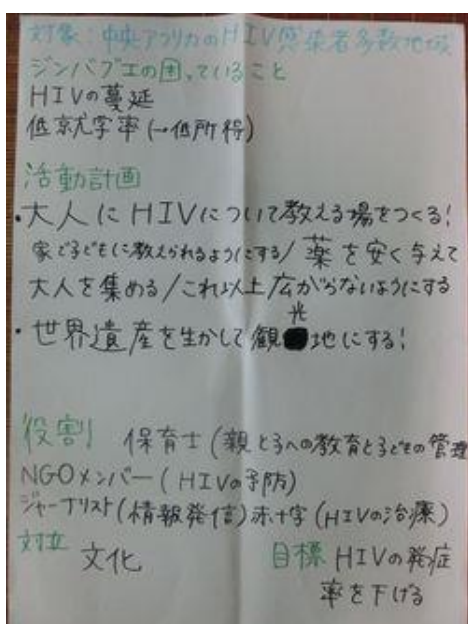 対象：中央アフリカのHIV感染者多数地域
ジンバブエの困っていること
HIVの蔓延
低就学率(→低所得)
活動計画
・大人にHIVについて教える場をつくる!
家で子どもに教えられるようにする/薬を安く与えて
大人を集める/これ以上広がらないようにする
・世界遺産を生かして観光地にする!
役割 保育士(親と子への教育と子どもの管理
NGOメンバー(HIVの予防)
ジャーナリスト(情報発信)赤十字(HIVの治療)
対立 文化 目標 HIVの発症
率を下げる